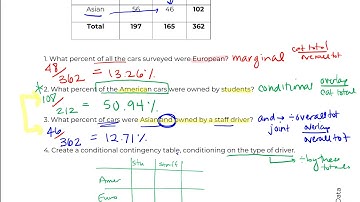 Asian 56 46 102
Total 197 165 362
1. What percent of all the cars surveyed were European? marginal cat total overall tot
48/362 = 13.26%
* 2. What percent of the American cars were owned by students? conditional overlap cat total
108/212 = 50.94%
3. What percent of cars were Asian and owned by a staff driver? and → ÷ overall tot
46/362 = 12.71% joint overlap overall tot
4. Create a conditional contingency table, conditioning on the type of driver. → ÷ by these totals
Stu Staff
Amer
Euro
Data